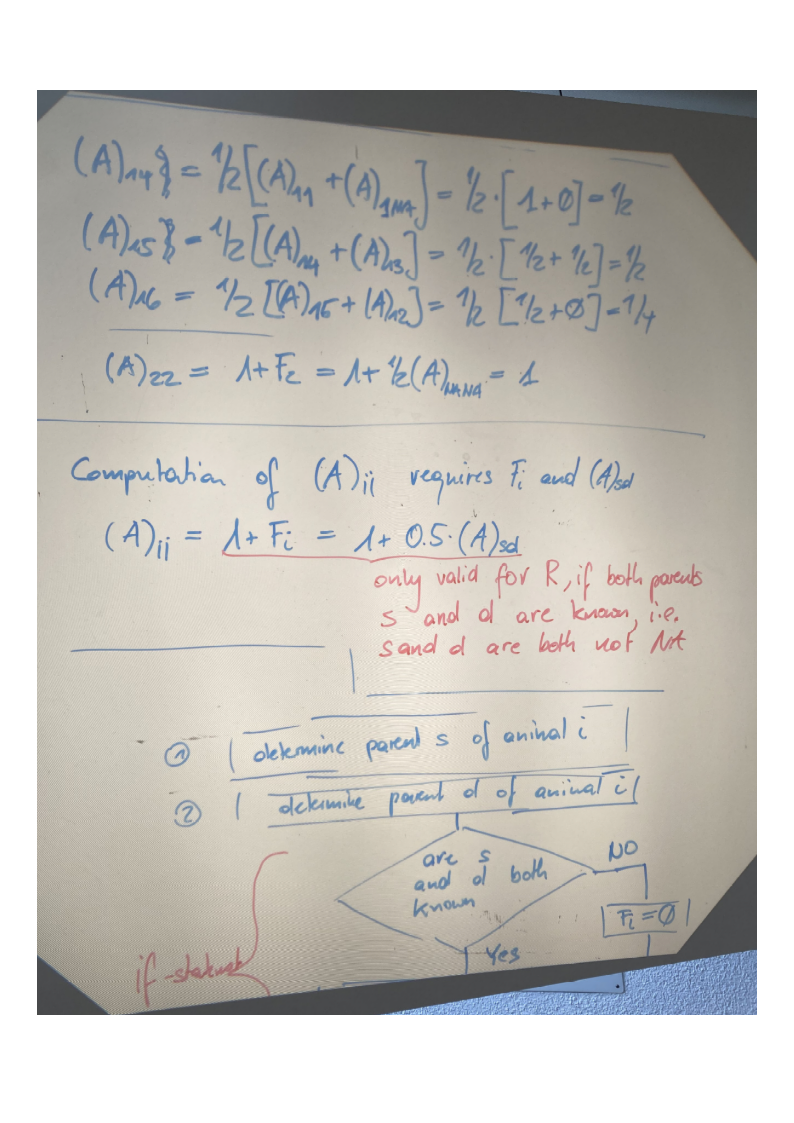 (A)₁₄} = ½[(A)₁₁ + (A)₁NA] = ½·[1+∅] = ½
(A)₁₅} = ½[(A)₁₄ + (A)₁₃] = ½·[½ + ½] = ½
(A)₁₆ = ½[(A)₁₅ + (A)₁₂] = ½ [½+∅] = 1/4
(A)₂₂ = 1+F₂ = 1+ ½(A)NANA = 1
Computation of (A)ii requires Fi and (A)sd
(A)ii = 1+ Fi = 1+ 0.5·(A)sd
only valid for R, if both parents
s and d are known, i.e.
s and d are both not NA
① determine parent s of animal i
② determine parent d of animal i
are s
and d both
known
NO
Fi = ∅
Yes
if-statement